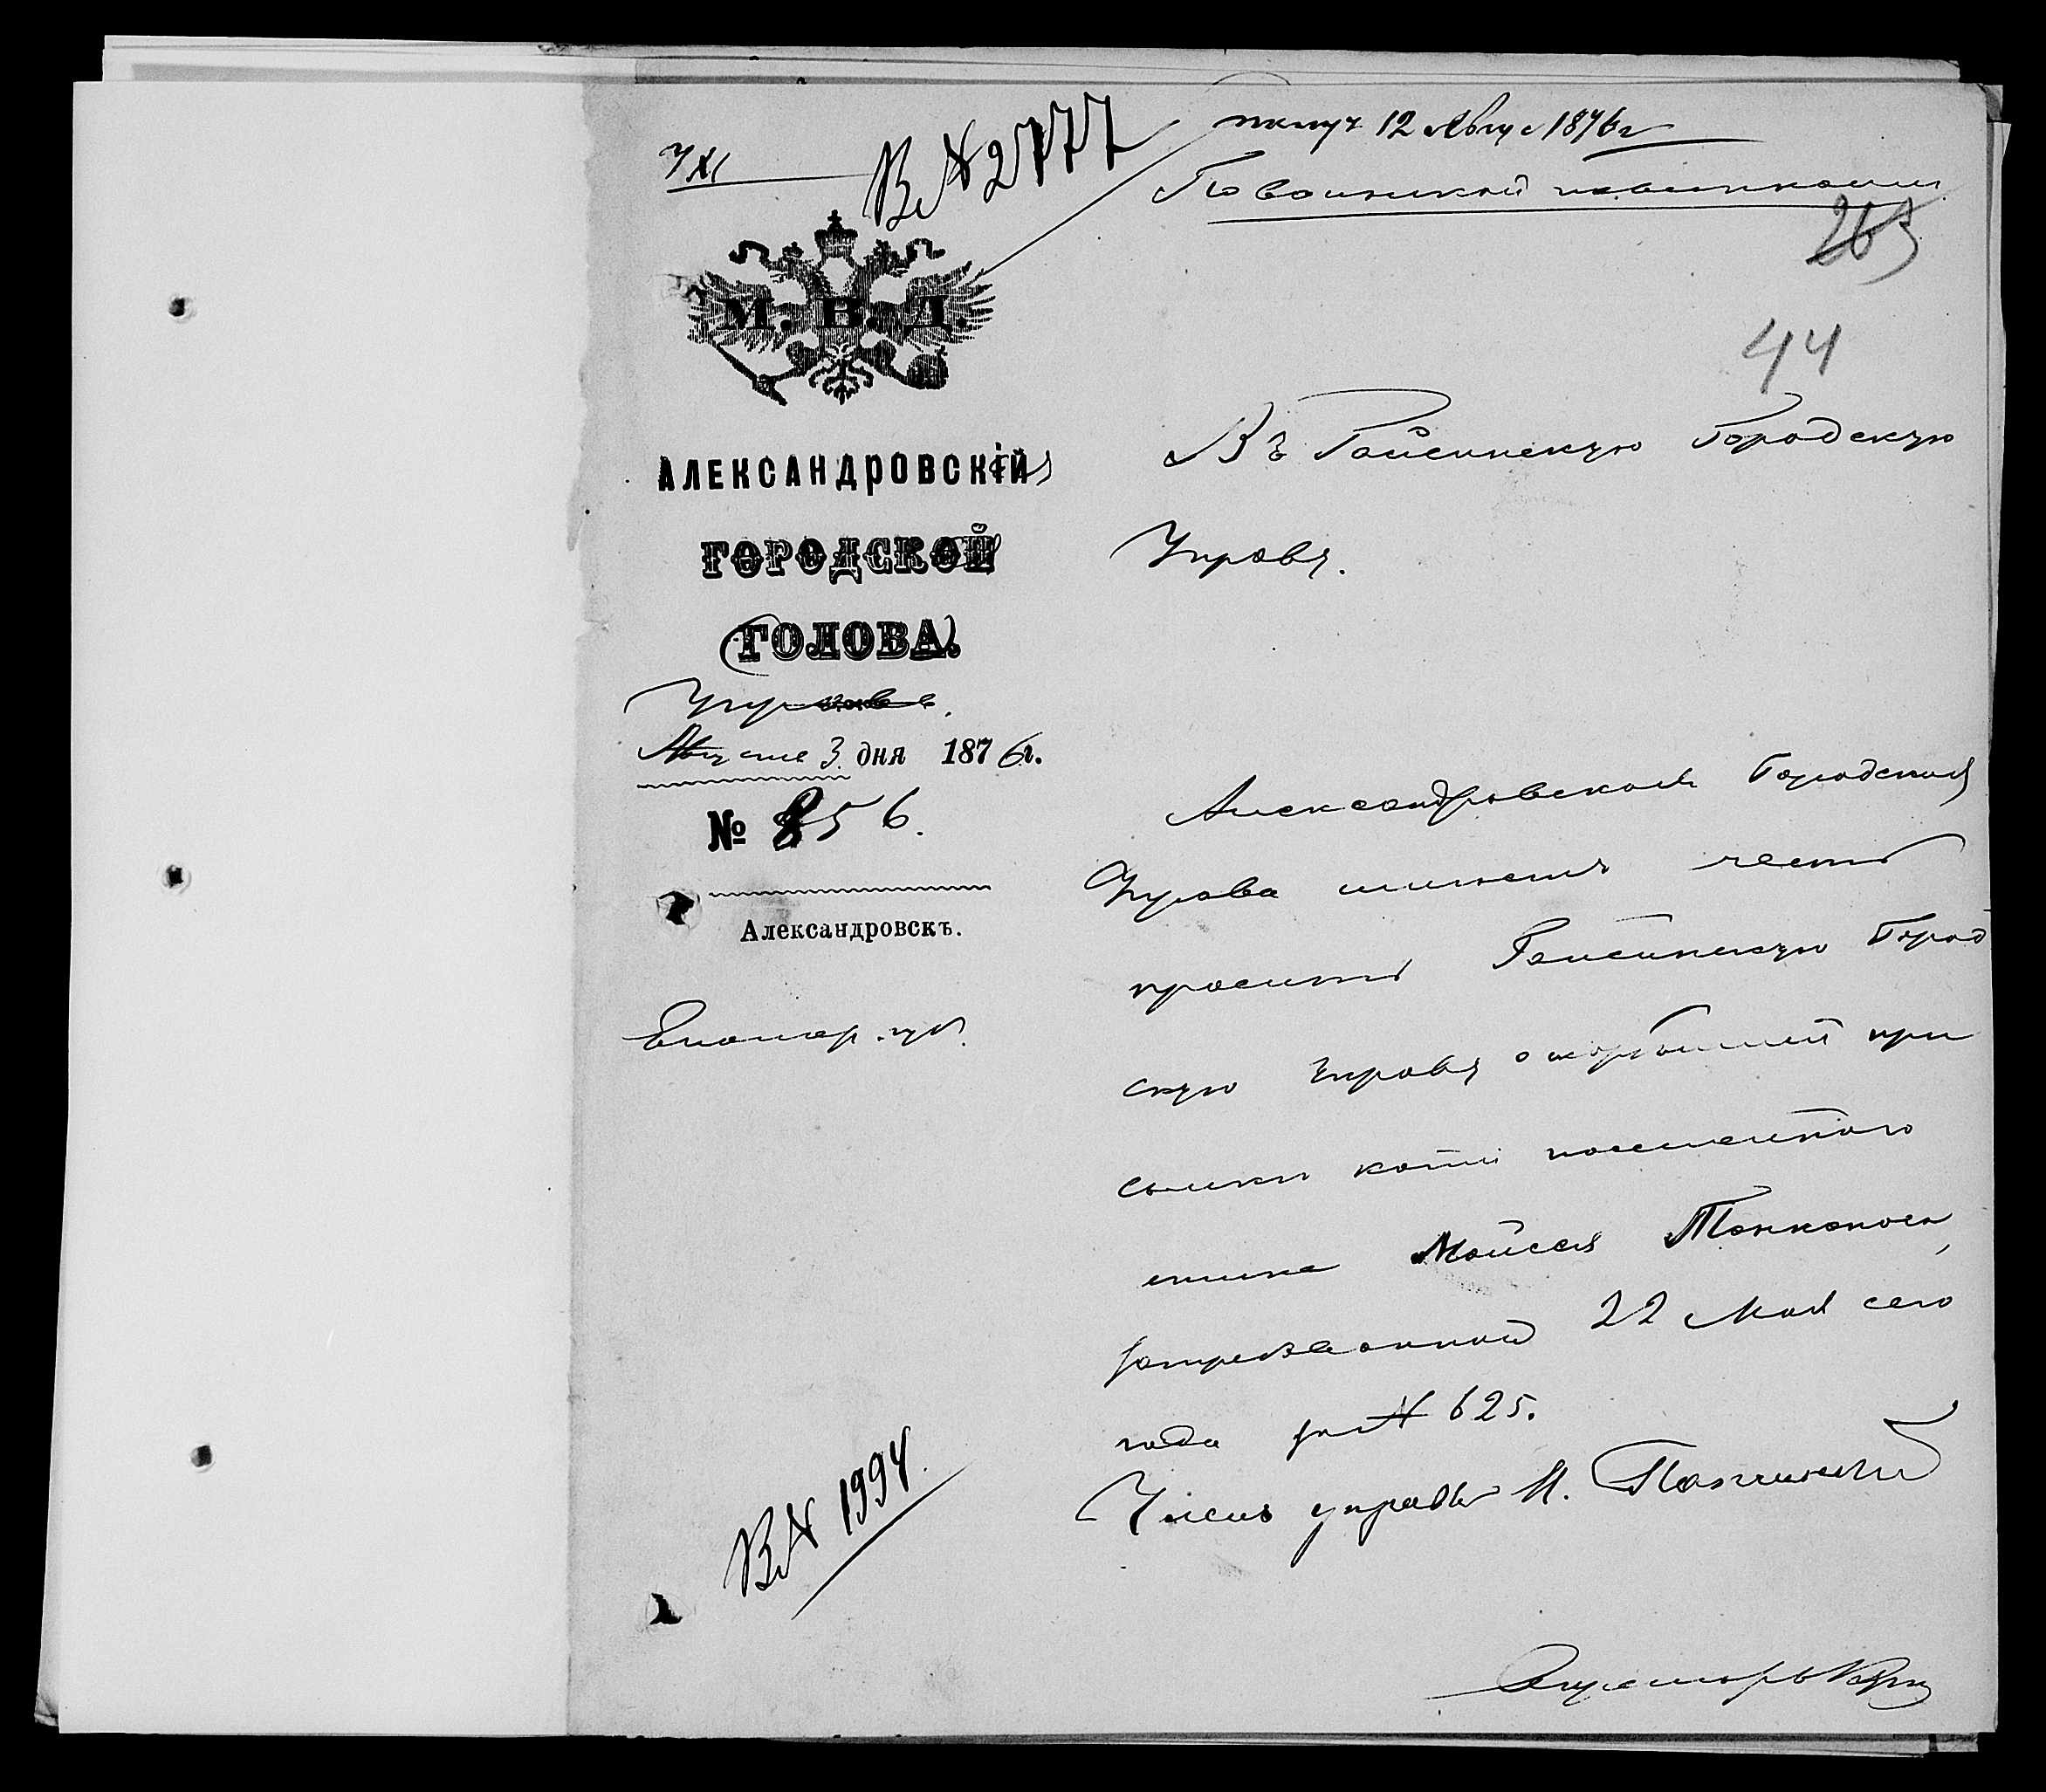 В № 2777
получ 12 Авгус 1876 г
По воинской повинности
263
44
М. В. Д.
АЛЕКСАНДРОВСКІЙ
ГОРОДСКОЙ
ГОЛОВА.
Управа.
Августа 3 дня 1876 г.
№ 856.
Александровскъ.
Екатер. губ.
Въ Гайсинскую Городскую
Управу.
Александровская Городская
Управа имѣетъ честь
просить Гайсинскую Город
скую Управу о скорѣйшей при
сылки копіи посемейнаго
списка Мойсея
затребованной 22 Мая сего
года за № 625.
Членъ управы И.
В № 1994.
Секретарь